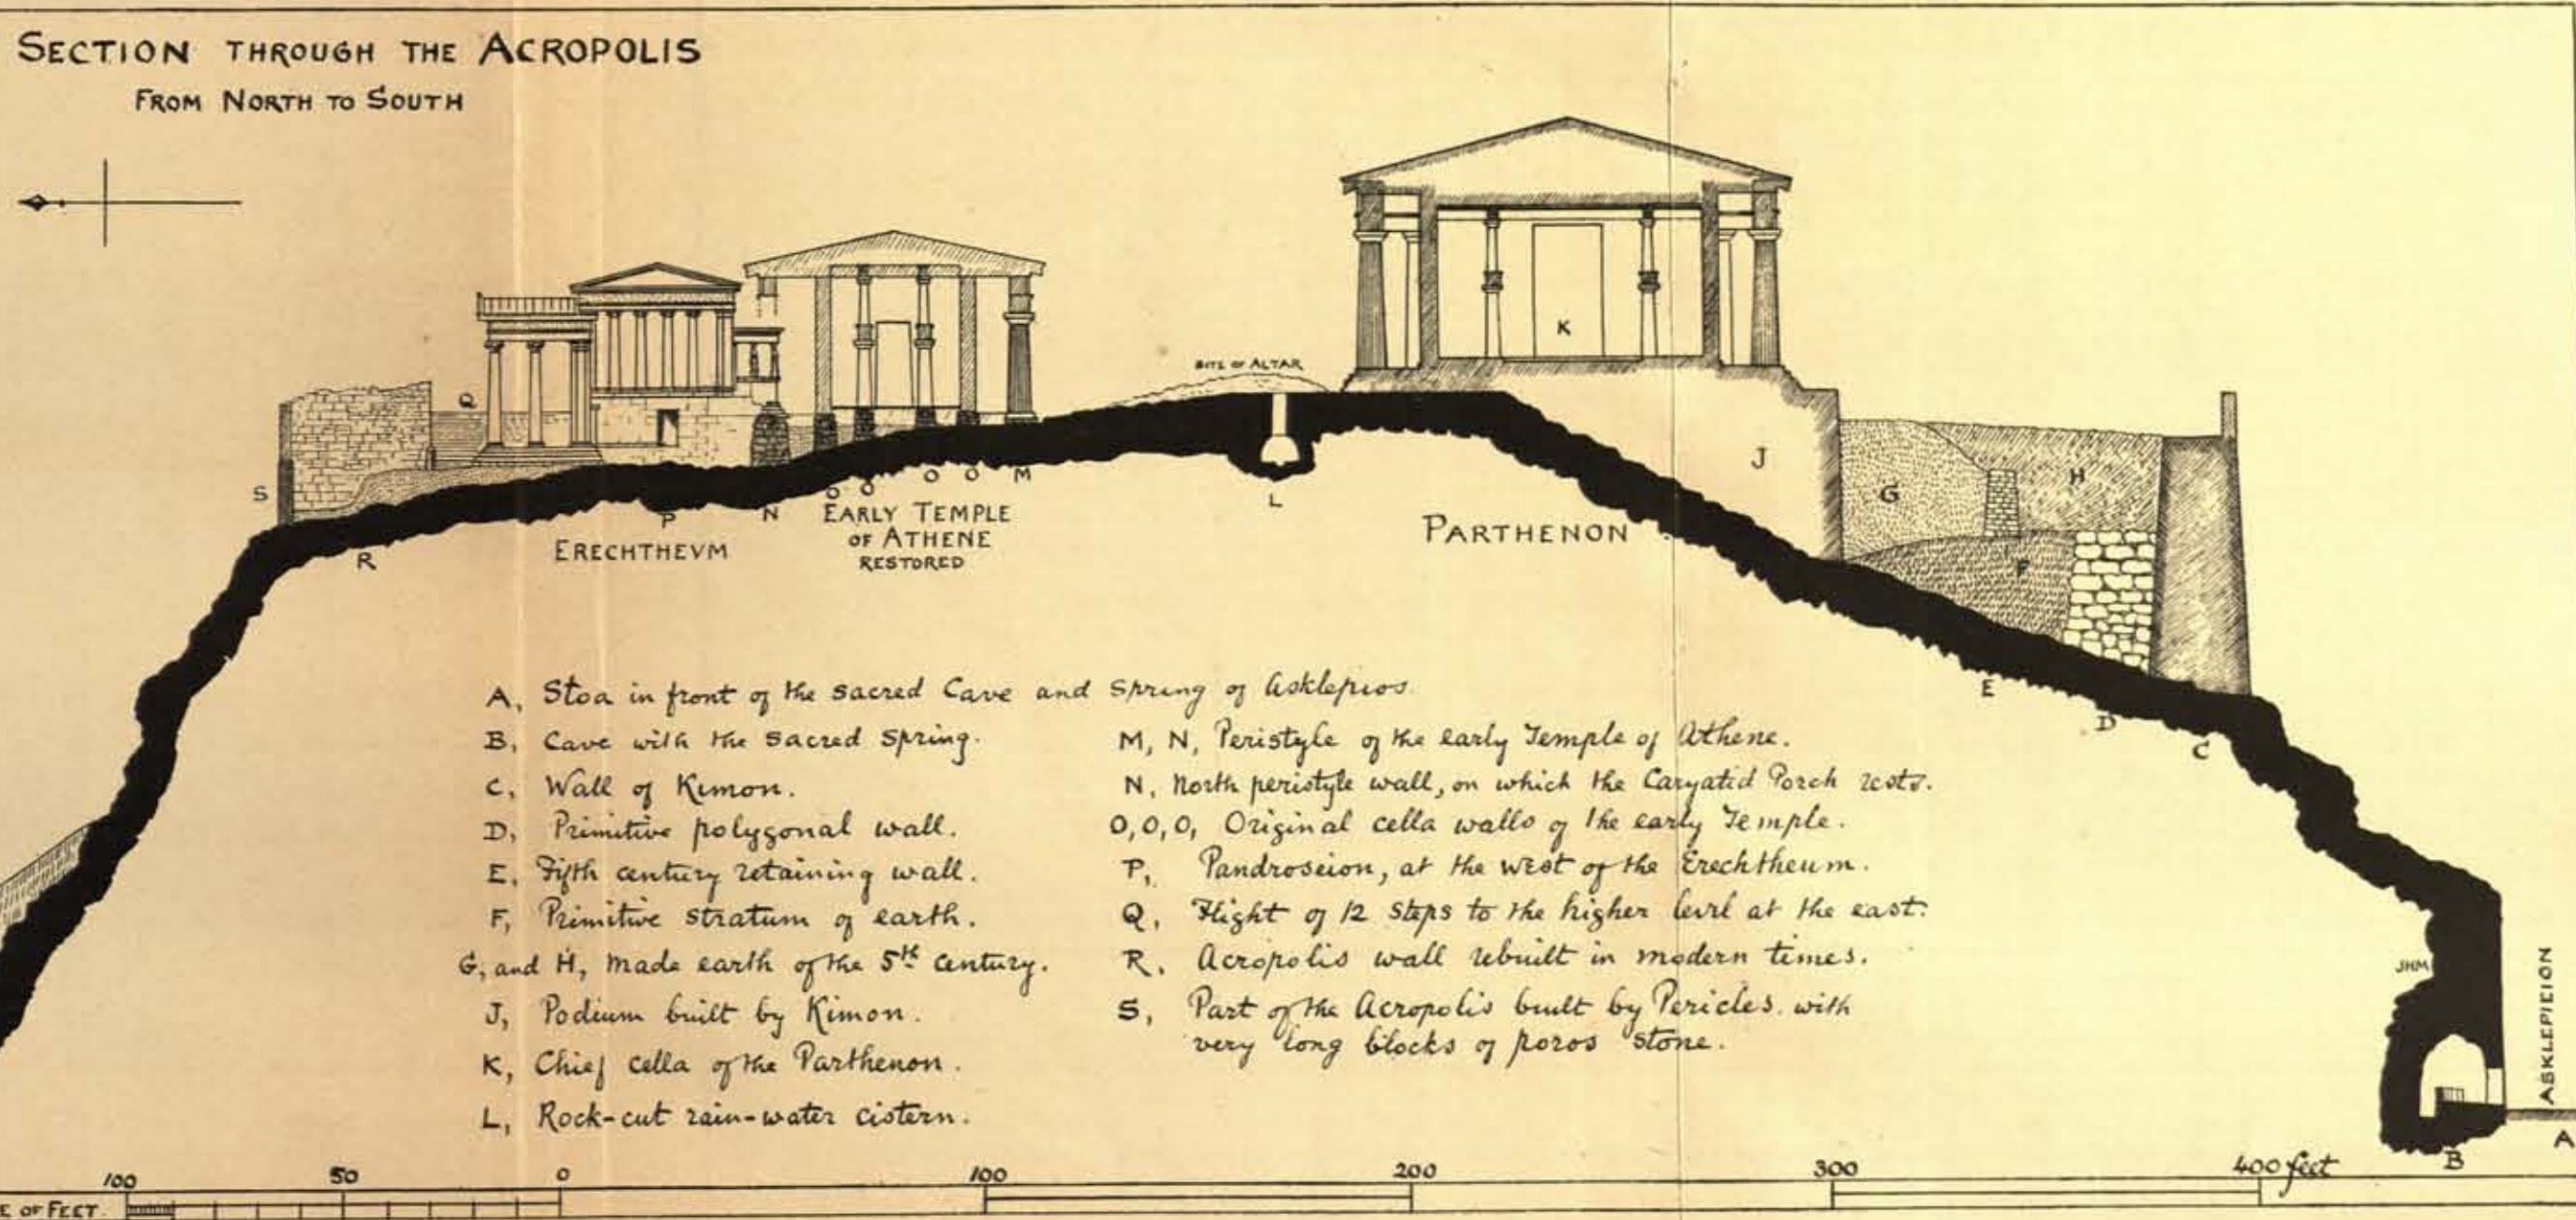 SECTION THROUGH THE ACROPOLIS
FROM NORTH TO SOUTH
SITE OF ALTAR
K
Q
S
J
G
H
O O O O M
L
R
P
N
EARLY TEMPLE
OF ATHENE
RESTORED
ERECHTHEVM
PARTHENON
F
E
D
C
A, Stoa in front of the sacred Cave and Spring of Asklepios.
B, Cave with the sacred spring.
C, Wall of Kimon.
D, Primitive polygonal wall.
E, Fifth century retaining wall.
F, Primitive stratum of earth.
G, and H, made earth of the 5th century.
J, Podium built by Kimon.
K, Chief cella of the Parthenon.
L, Rock-cut rain-water cistern.
M, N, Peristyle of the early Temple of Athene.
N, North peristyle wall, on which the Caryatid Porch rests.
O,O,O, Original cella walls of the early Temple.
P, Pandroseion, at the west of the Erechtheum.
Q, Flight of 12 steps to the higher level at the east.
R, Acropolis wall rebuilt in modern times.
S, Part of the Acropolis built by Pericles with
very long blocks of poros stone.
JHM
ASKLEPIEION
A
B
100 50 0 100 200 300 400 feet
E OF FEET